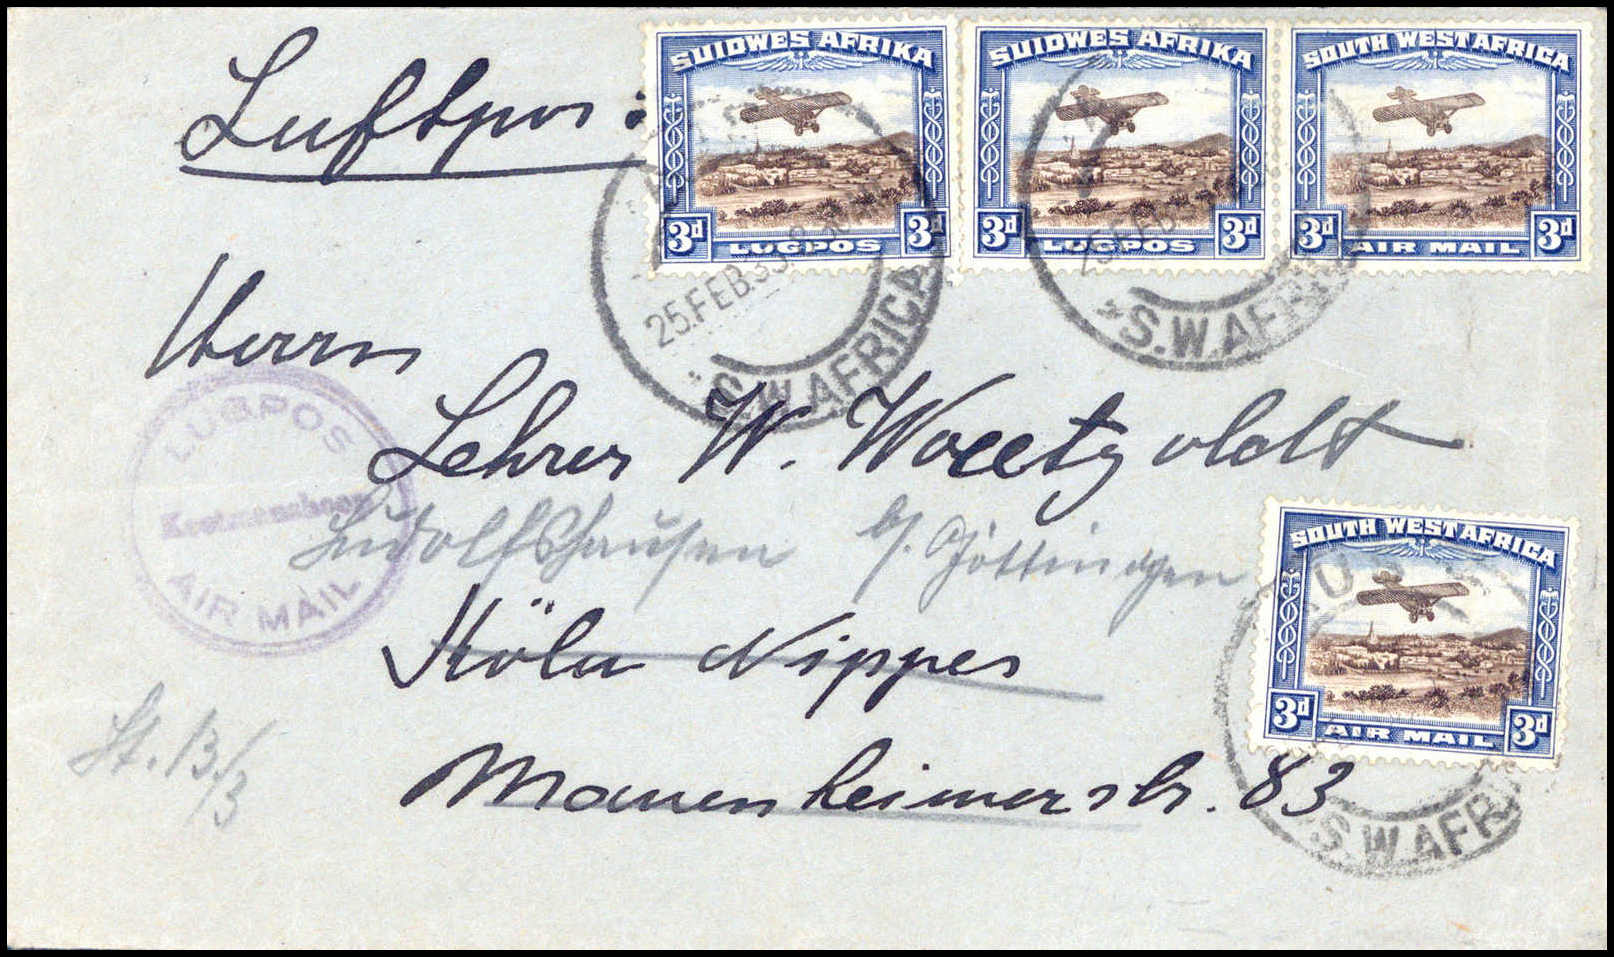 Luftpost
SUIDWES AFRIKA
3d LUGPOS 3d
SUIDWES AFRIKA
3d LUGPOS 3d
SOUTH WEST AFRICA
3d AIR MAIL 3d
25.FEB.33.8
S.W.AFRICA
25.FEB
S.W.AFRI
Herrn
Lehrer W. Woeetzoldt
Ludolfshausen b/. Göttingen
Köln Nippes
Mannheimerstr. 83
LUGPOS
Keetmanshoop
AIR MAIL
SOUTH WEST AFRICA
3d AIR MAIL 3d
S.W.AFRI
St. 13/3